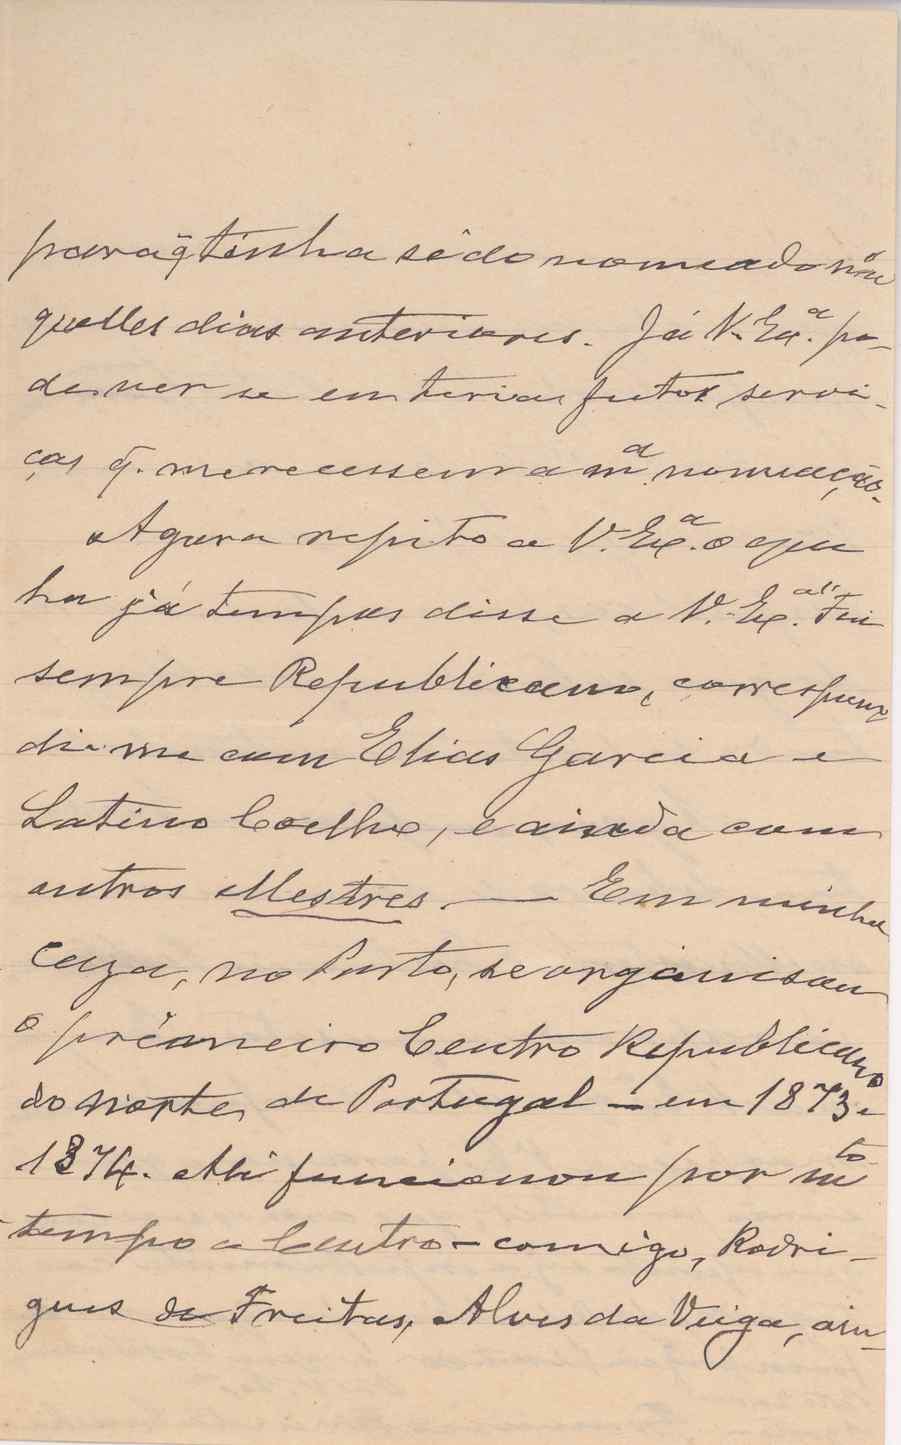 para q̃ tinha sido nomeado n'a
quelles dias anteriores. Já V. Ex.ª po-
de ver se eu teria feito servi-
ços q̃. merecessem a m.ª nomeação.
Agora repito a V. Ex.ª o que
ha já tempos disse a V. Ex.ª Fui
sempre Republicano, correspon
di-me com Elias Garcia e
Latino Coelho, e ainda com
outros Mestres. — Em minha
caza, no Porto, se organisou
o primeiro Centro Republicano
do norte, de Portugal — em 1873 e
1874. Ali funcionou por mto
tempo o Centro — comigo, Rodri-
gues de Freitas, Alves da Veiga, ain-